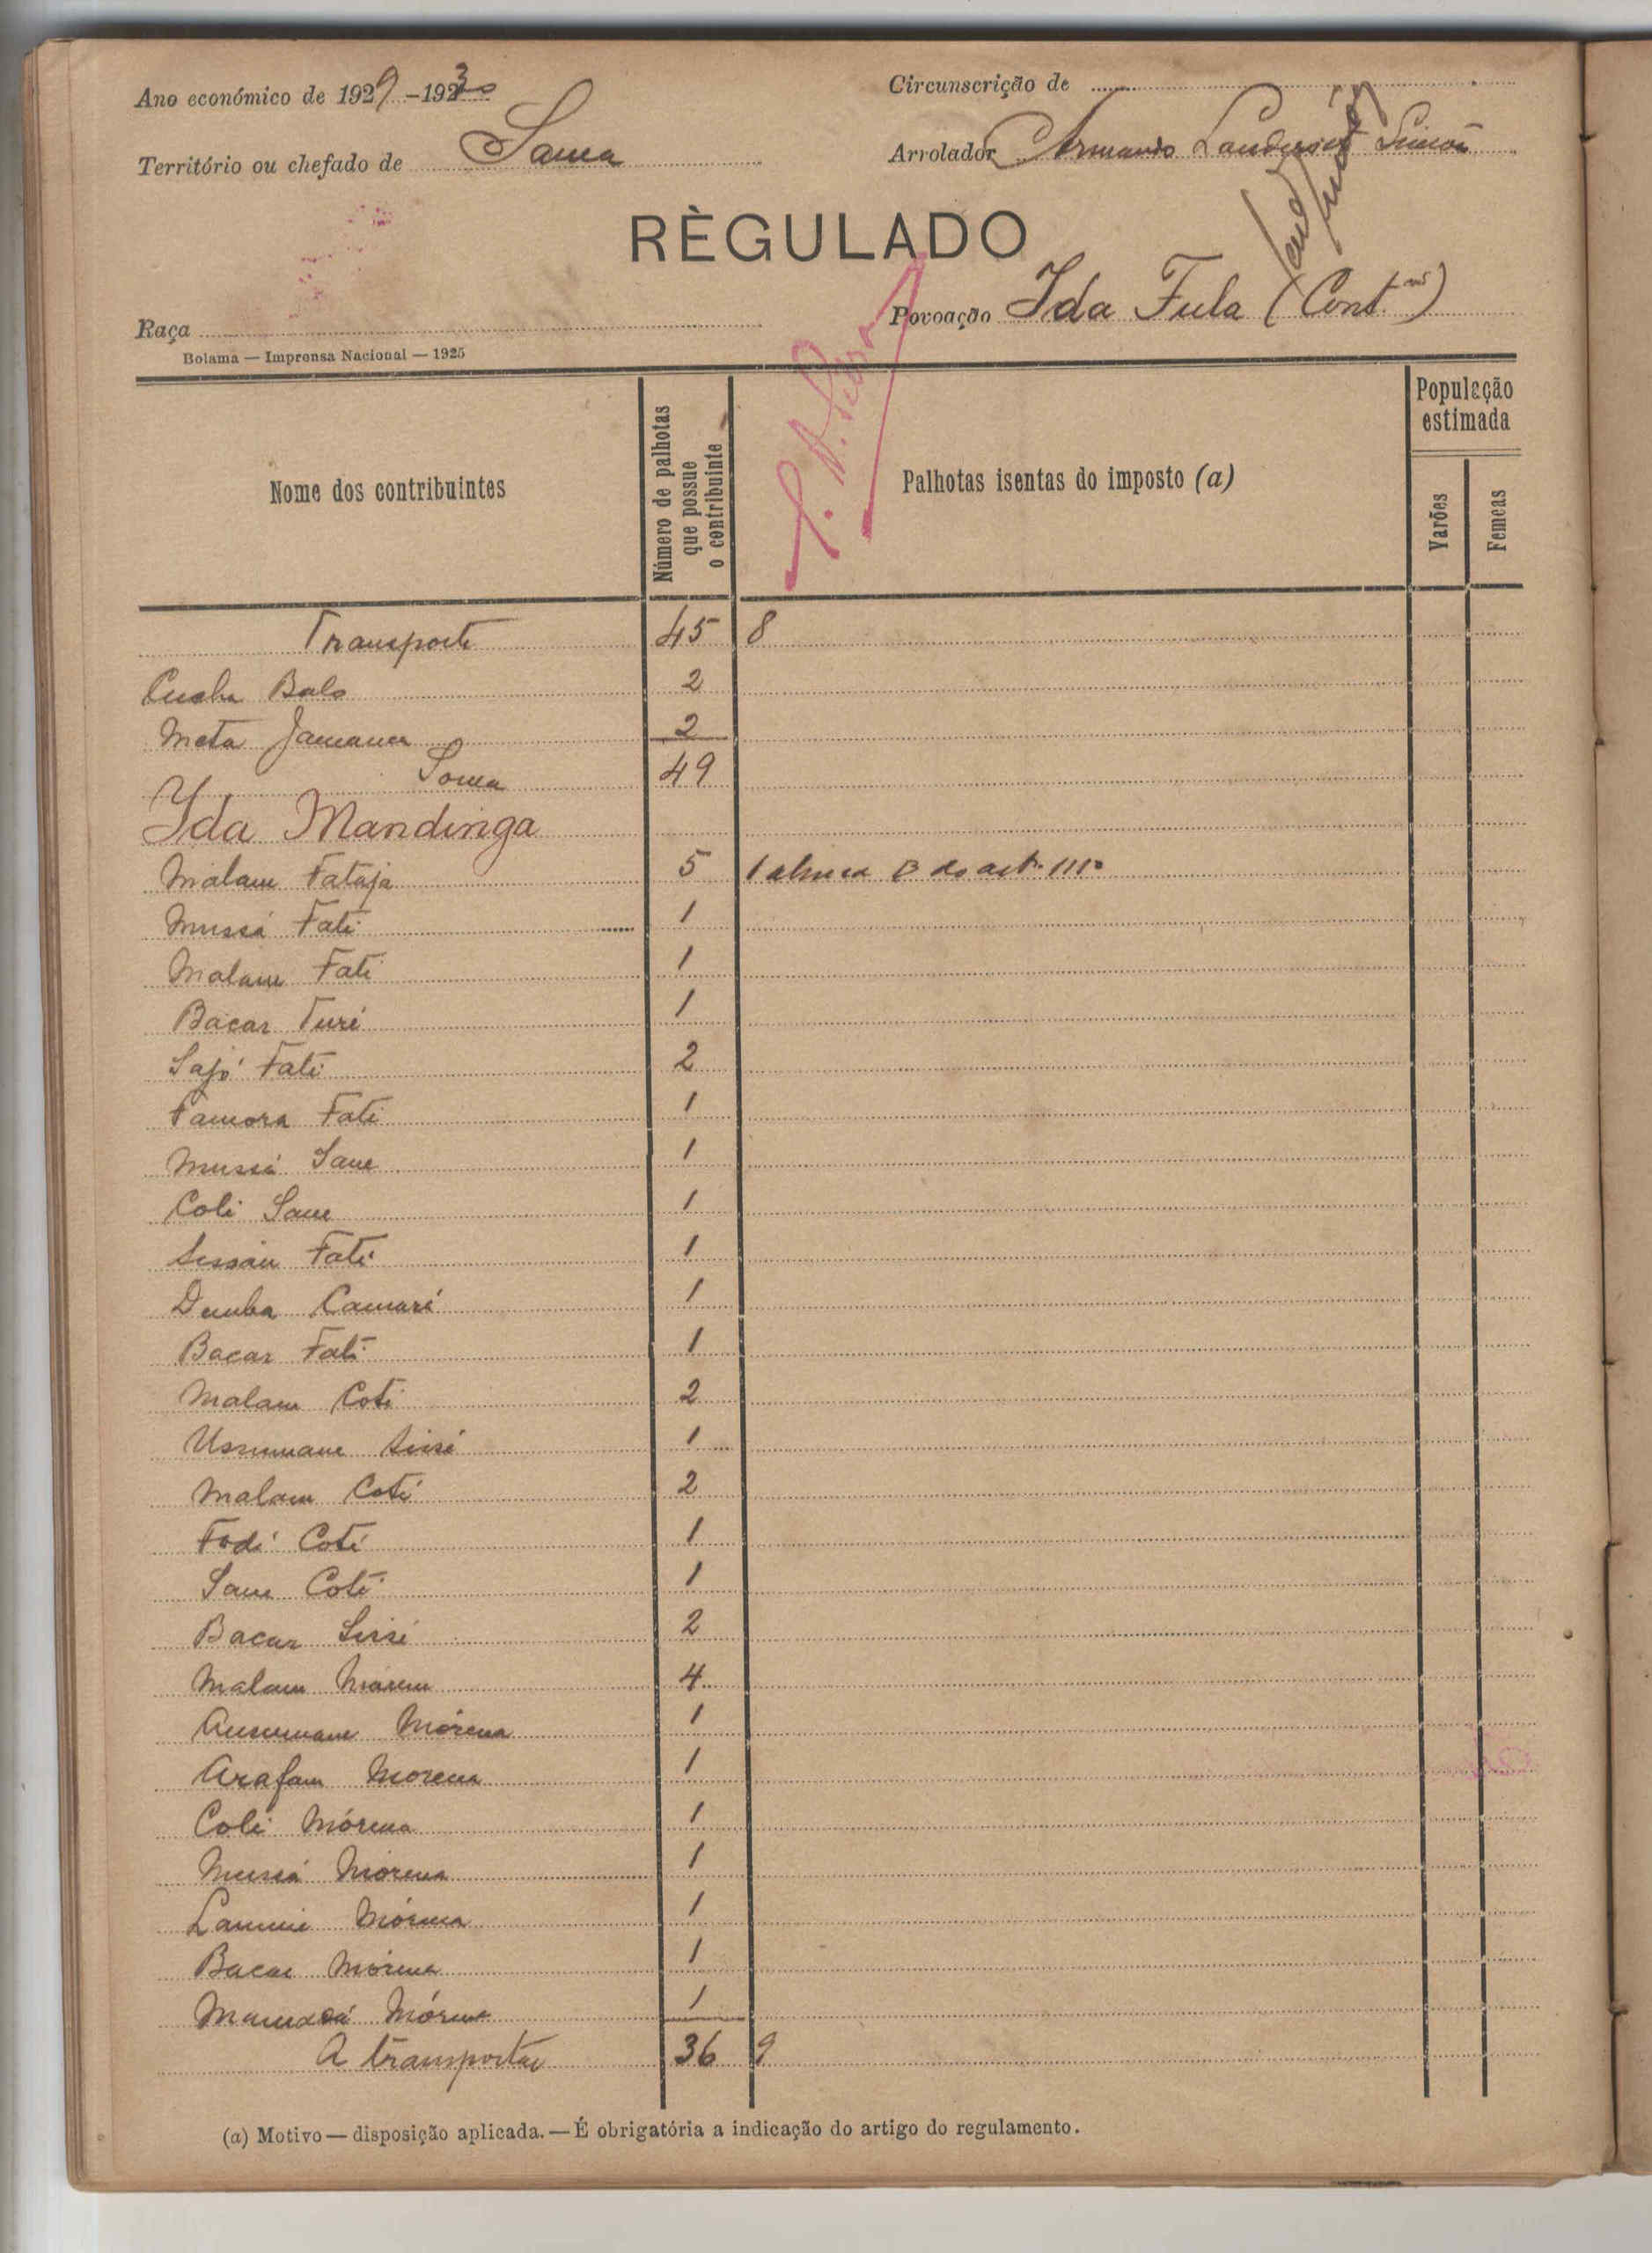 Ano económico de 1929-1930
Circunscrição de
Território ou chefado de Sama
Arrolador Armando
RÈGULADO
Raça
Povoação Ida Fula (Cont.)
Bolama — Imprensa Nacional — 1925
Nome dos contribuintes
Número de palhotas que possue o contribuinte
Palhotas isentas do imposto (a)
População estimada
Varões
Femeas
Transporte 45 8
Balo 2
Meta Jamanca 2
Soma 49
Ida Mandinga
Malam Fataja 5 1 alinea B do art. 111º
Mussá Fati 1
Malam Fati 1
Bacar Turé 1
Sajó Fati 2
Famora Fati 1
Mussá Sane 1
Coli Sane 1
Fati 1
Demba Camará 1
Bacar Fati 1
Malam Coti 2
Ussumane Sissé 1
Malam Coti 2
Fodé Coti 1
Sane Coti 1
Bacar Sissé 2
Malam 4
Aussumane Mórena 1
Arafam Morena 1
Coli Mórena 1
Mussá Mórena 1
Lamine Mórena 1
Bacar Mórena 1
Mamadá Mórena 1
A transportar 36 9
(a) Motivo — disposição aplicada. — É obrigatória a indicação do artigo do regulamento.